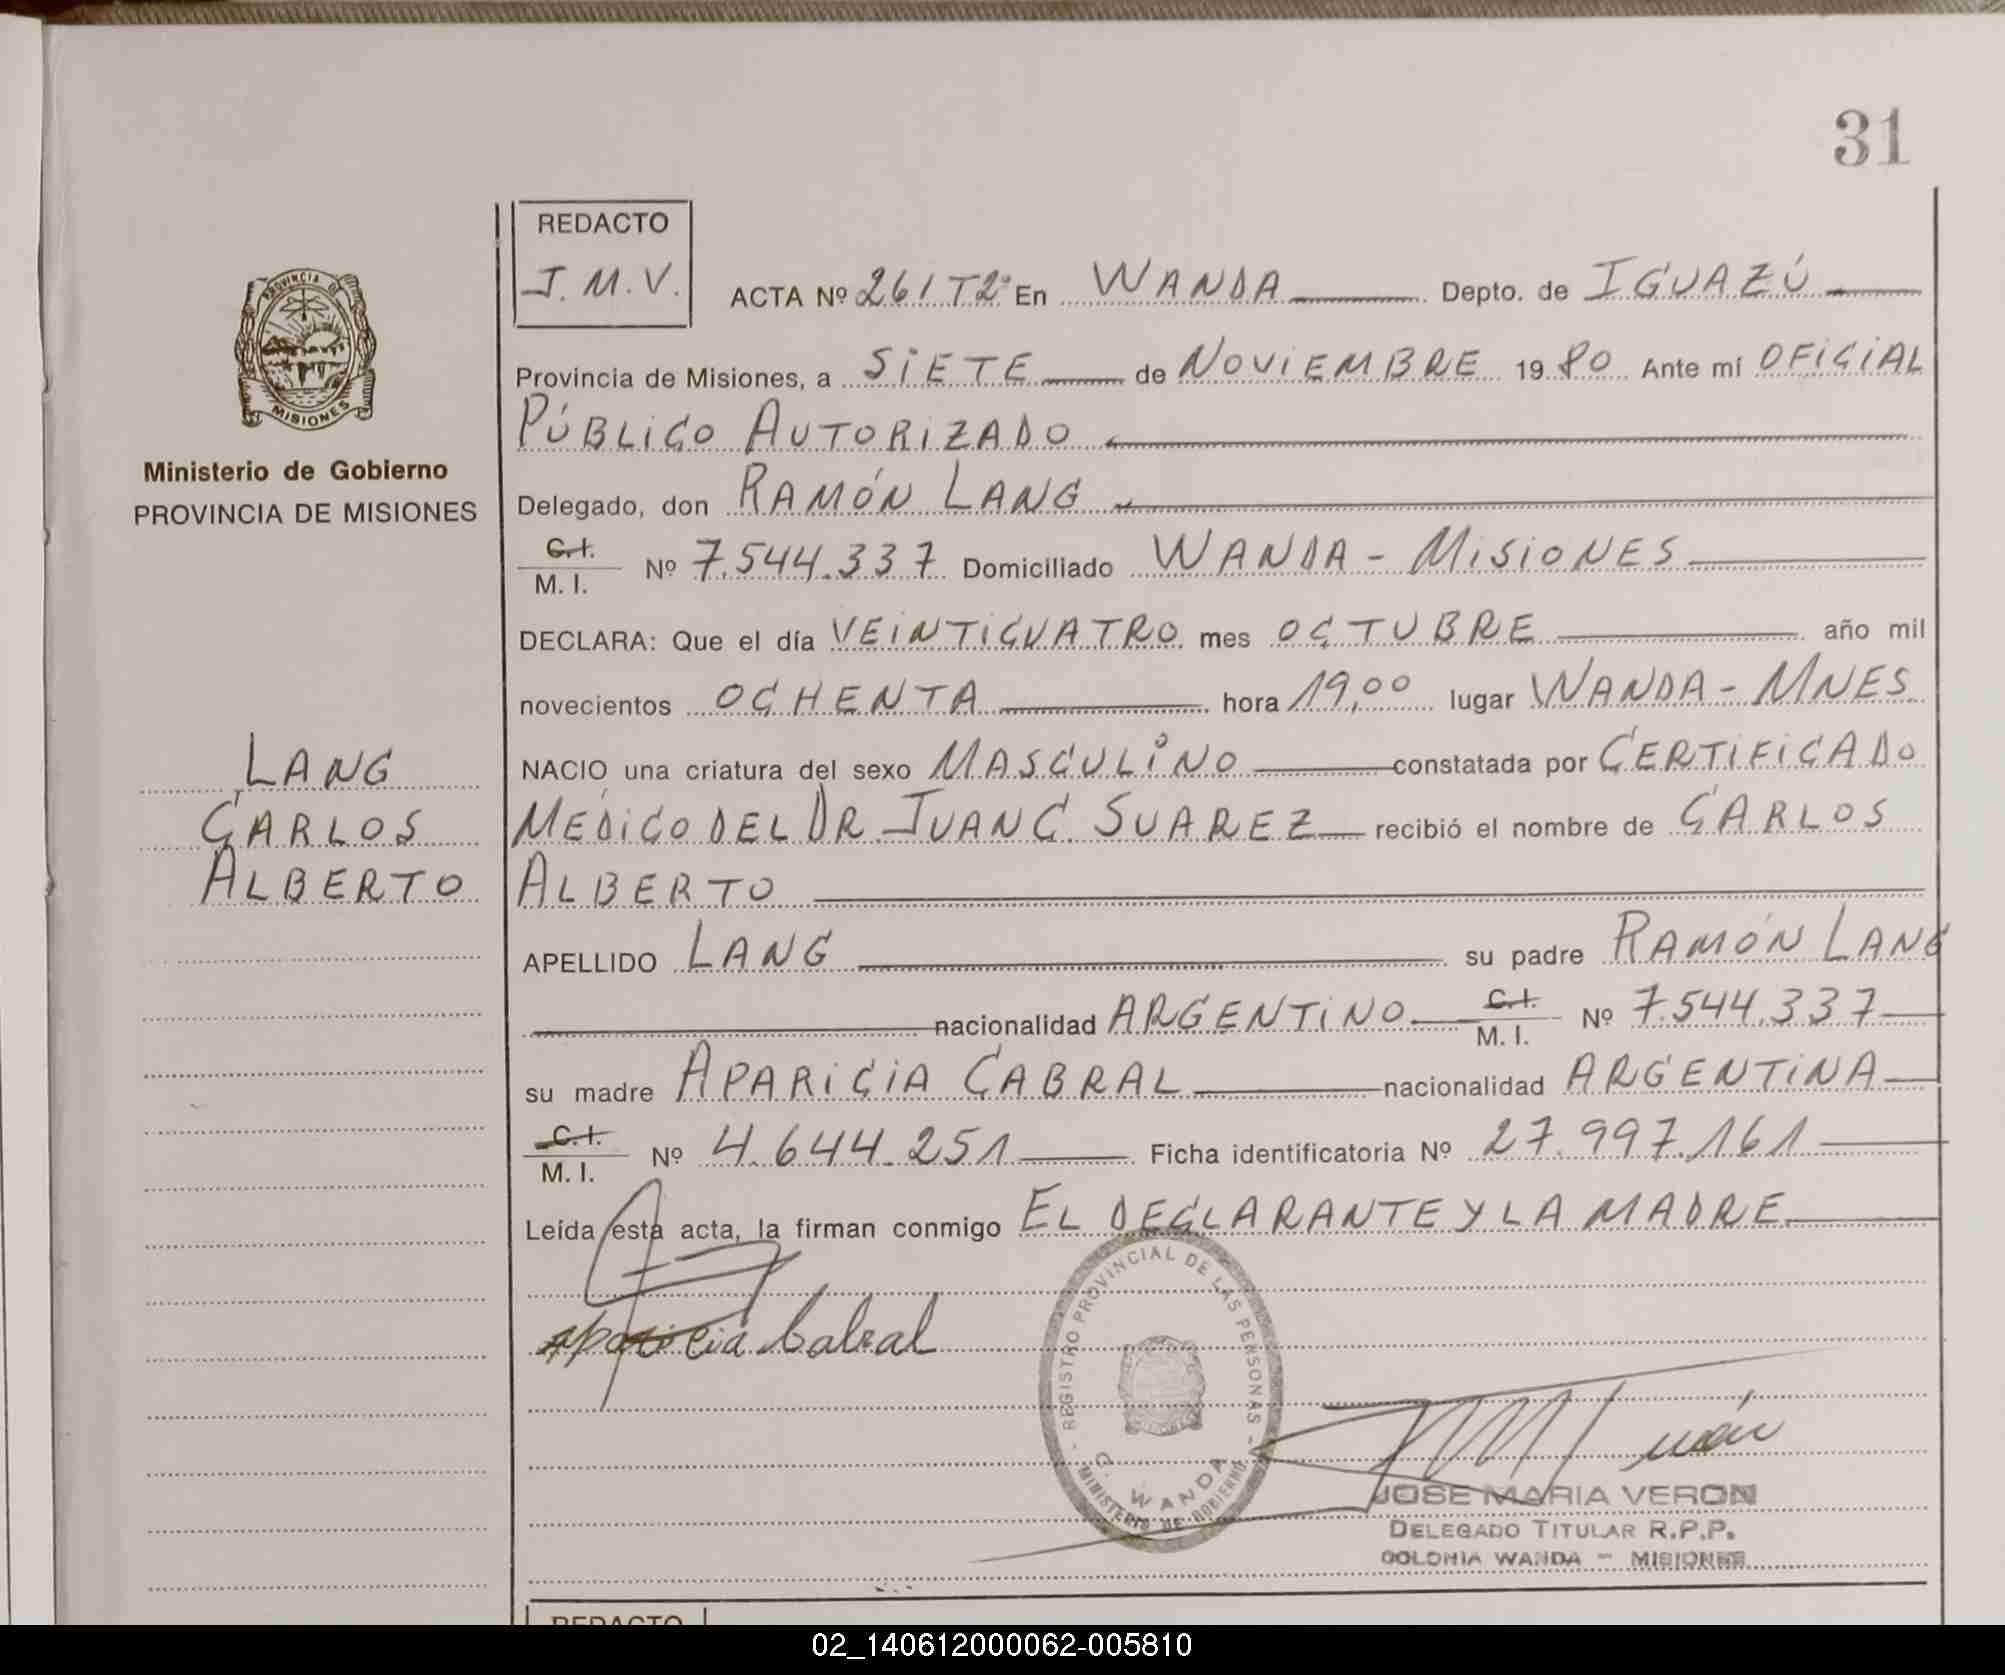 31
REDACTO
J. M. V.
ACTA Nº 261 T2º En WANDA Depto. de IGUAZÚ
Provincia de Misiones, a SIETE de NOVIEMBRE 1980 Ante mí OFICIAL
PÚBLICO AUTORIZADO
Delegado, don RAMÓN LANG
C.I.
M. I. Nº 7.544.337 Domiciliado WANDA - MISIONES
DECLARA: Que el día VEINTICUATRO mes OCTUBRE año mil
novecientos OCHENTA hora 19,00 lugar WANDA - MNES
NACIO una criatura del sexo MASCULINO constatada por CERTIFICADO
MEDICO DEL DR. JUAN C. SUAREZ recibió el nombre de CARLOS
ALBERTO
APELLIDO LANG su padre RAMÓN LANG
nacionalidad ARGENTINO C.I. M. I. Nº 7.544.337
su madre APARICIA CABRAL nacionalidad ARGENTINA
C.I.
M. I. Nº 4.644.251 Ficha identificatoria Nº 27.997.161
Leída esta acta, la firman conmigo EL DECLARANTE Y LA MADRE
aparicia Cabral
PROVINCIA DE
MISIONES
Ministerio de Gobierno
PROVINCIA DE MISIONES
LANG
CARLOS
ALBERTO
REGISTRO PROVINCIAL DE LAS PERSONAS
C. WANDA
MINISTERIO DE GOBIERNO
JOSE MARIA VERON
DELEGADO TITULAR R.P.P.
COLONIA WANDA - MISIONES
REDACTO
02_140612000062-005810